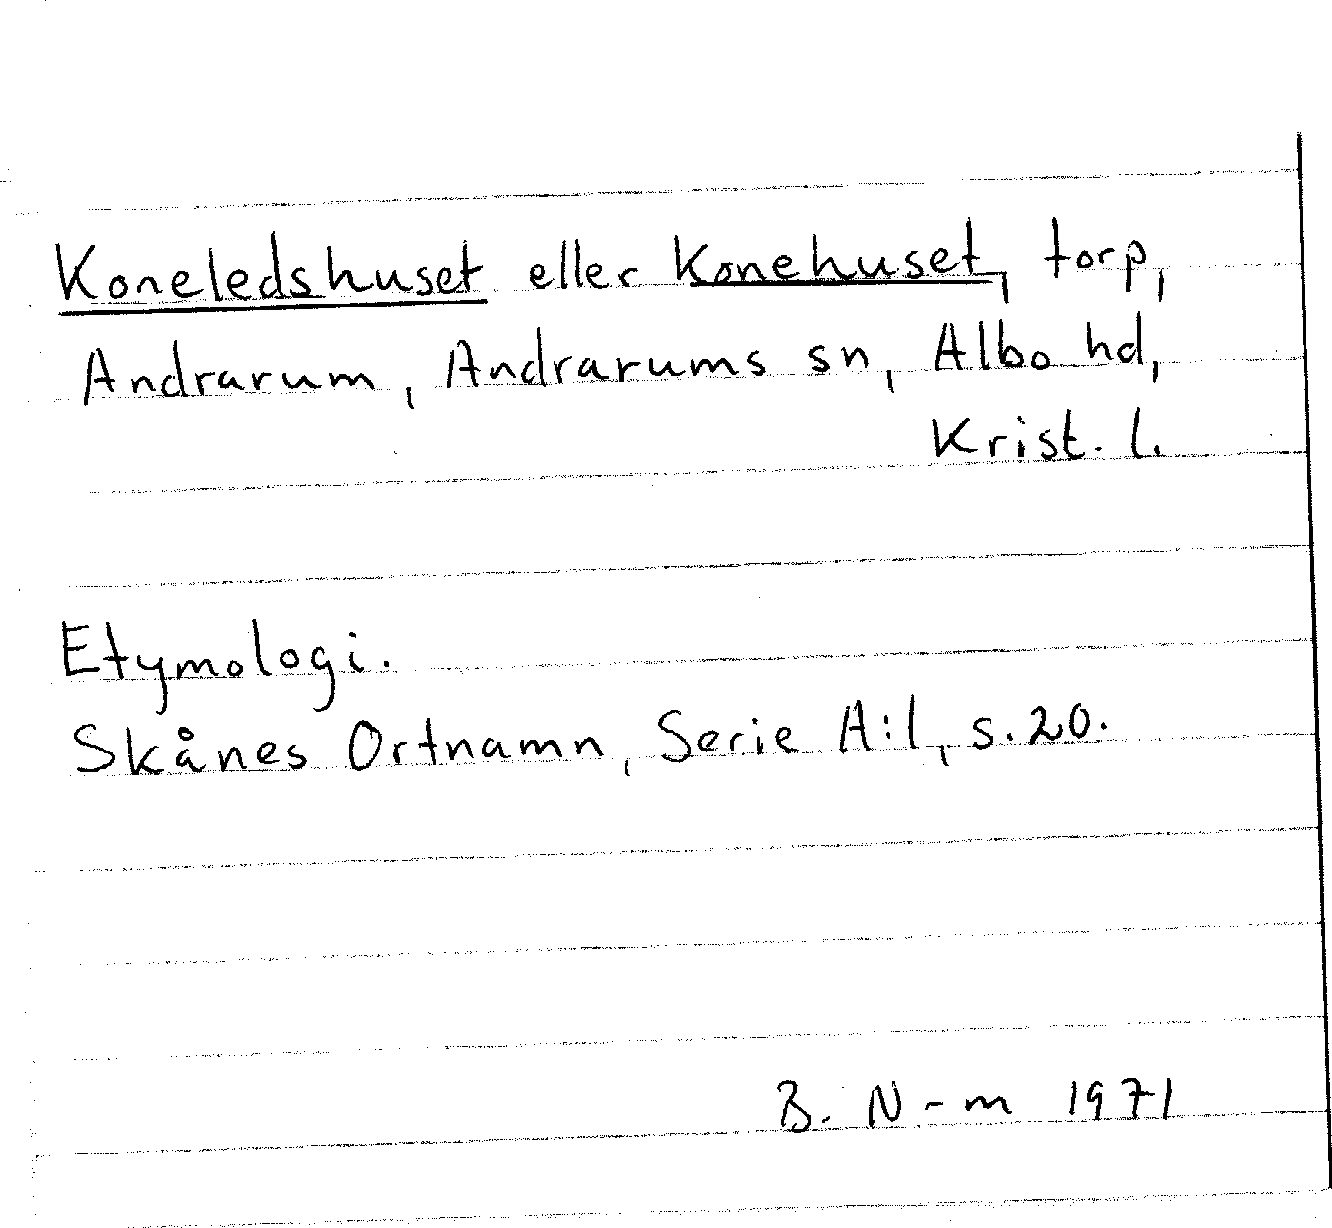 Koneledshuset eller Konehuset, torp,
Andrarum, Andrarums sn, Albo hd,
Krist. l.
Etymologi.
Skånes Ortnamn, Serie A:1, s. 20.
B. N-m 1971